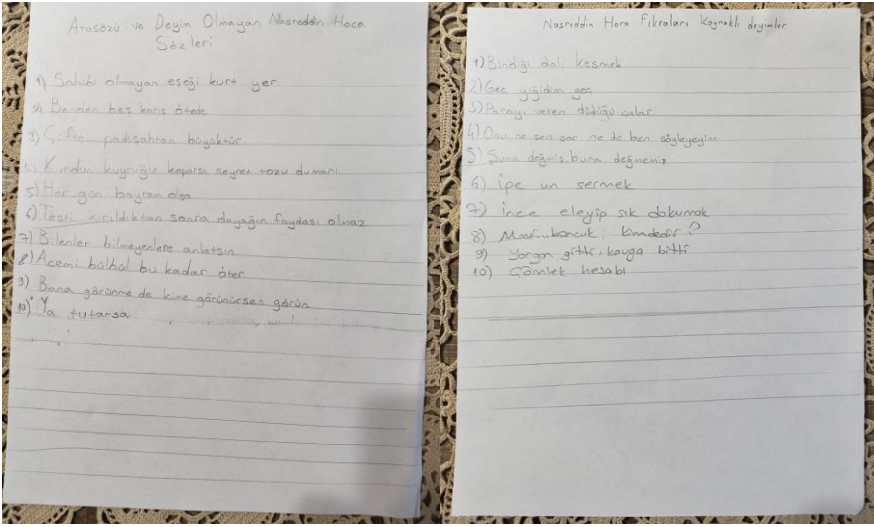 Atasözü ve Deyim Olmayan Nasreddin Hoca
Sözleri
1) Sahibi olmayan eşeği kurt yer.
2) Benden beş karış ötede
3) Çiftçi padişahtan büyüktür
4) Kurdun kuyruğu koparsa seyret tozu dumanı
5) Her gün bayram olsa
6) Testi kırıldıktan sonra dayağın faydası olmaz
7) Bilenler bilmeyenlere anlatsın
8) Acemi bülbül bu kadar öter
9) Bana görünme de kime görünürsen görün
10) Ya tutarsa
Nasreddin Hoca Fıkraları Kaynaklı deyimler
1) Bindiği dalı kesmek
2) Geç yiğidim geç
3) Parayı veren düdüğü çalar
4) Onu ne sen sor ne de ben söyleyeyim
5) Şuna değmiş buna değmemiş
6) İpe un sermek
7) İnce eleyip sık dokumak
8) Mavi boncuk kimdedir?
9) Yorgan gitti, kavga bitti
10) Çömlek hesabı